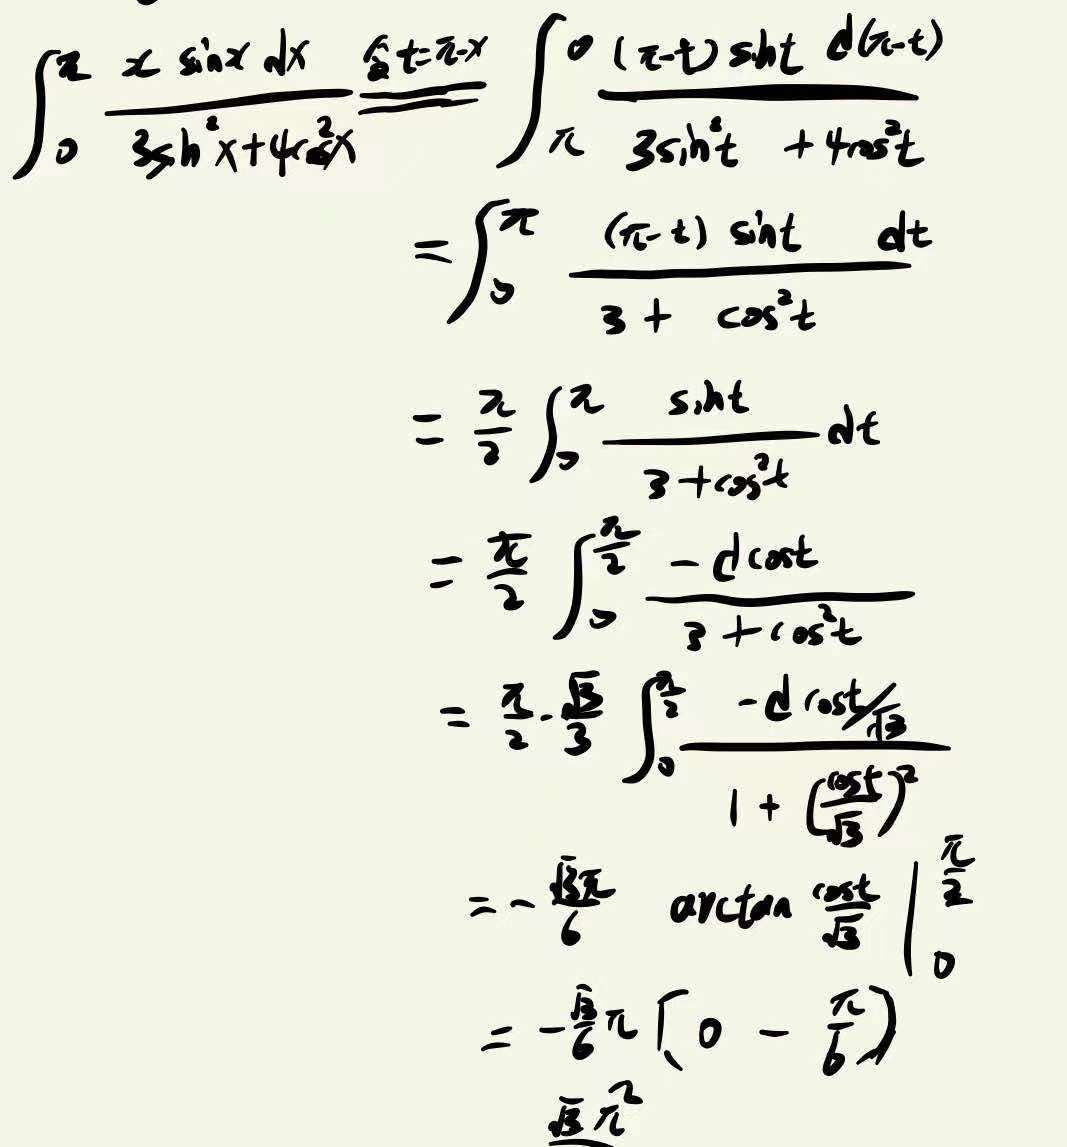 ∫₀^π (x sin x dx)/(3sin²x+4cos²x) 令 t=π-x ∫_π^0 ((π-t) sin t d(π-t))/(3sin²t + 4cos²t)
= ∫₀^π ((π-t) sin t dt)/(3 + cos²t)
= π/2 ∫₀^π (sin t)/(3+cos²t) dt
= π/2 ∫₀^(π/2) (-d cos t)/(3+cos²t)
= π/2 · √3/3 ∫₀^(π/2) (-d cos t/√3)/(1 + (cos t/√3)²)
= - √3π/6 arctan cos t/√3 |₀^(π/2)
= - √3/6 π (0 - π/6)
√3 π²